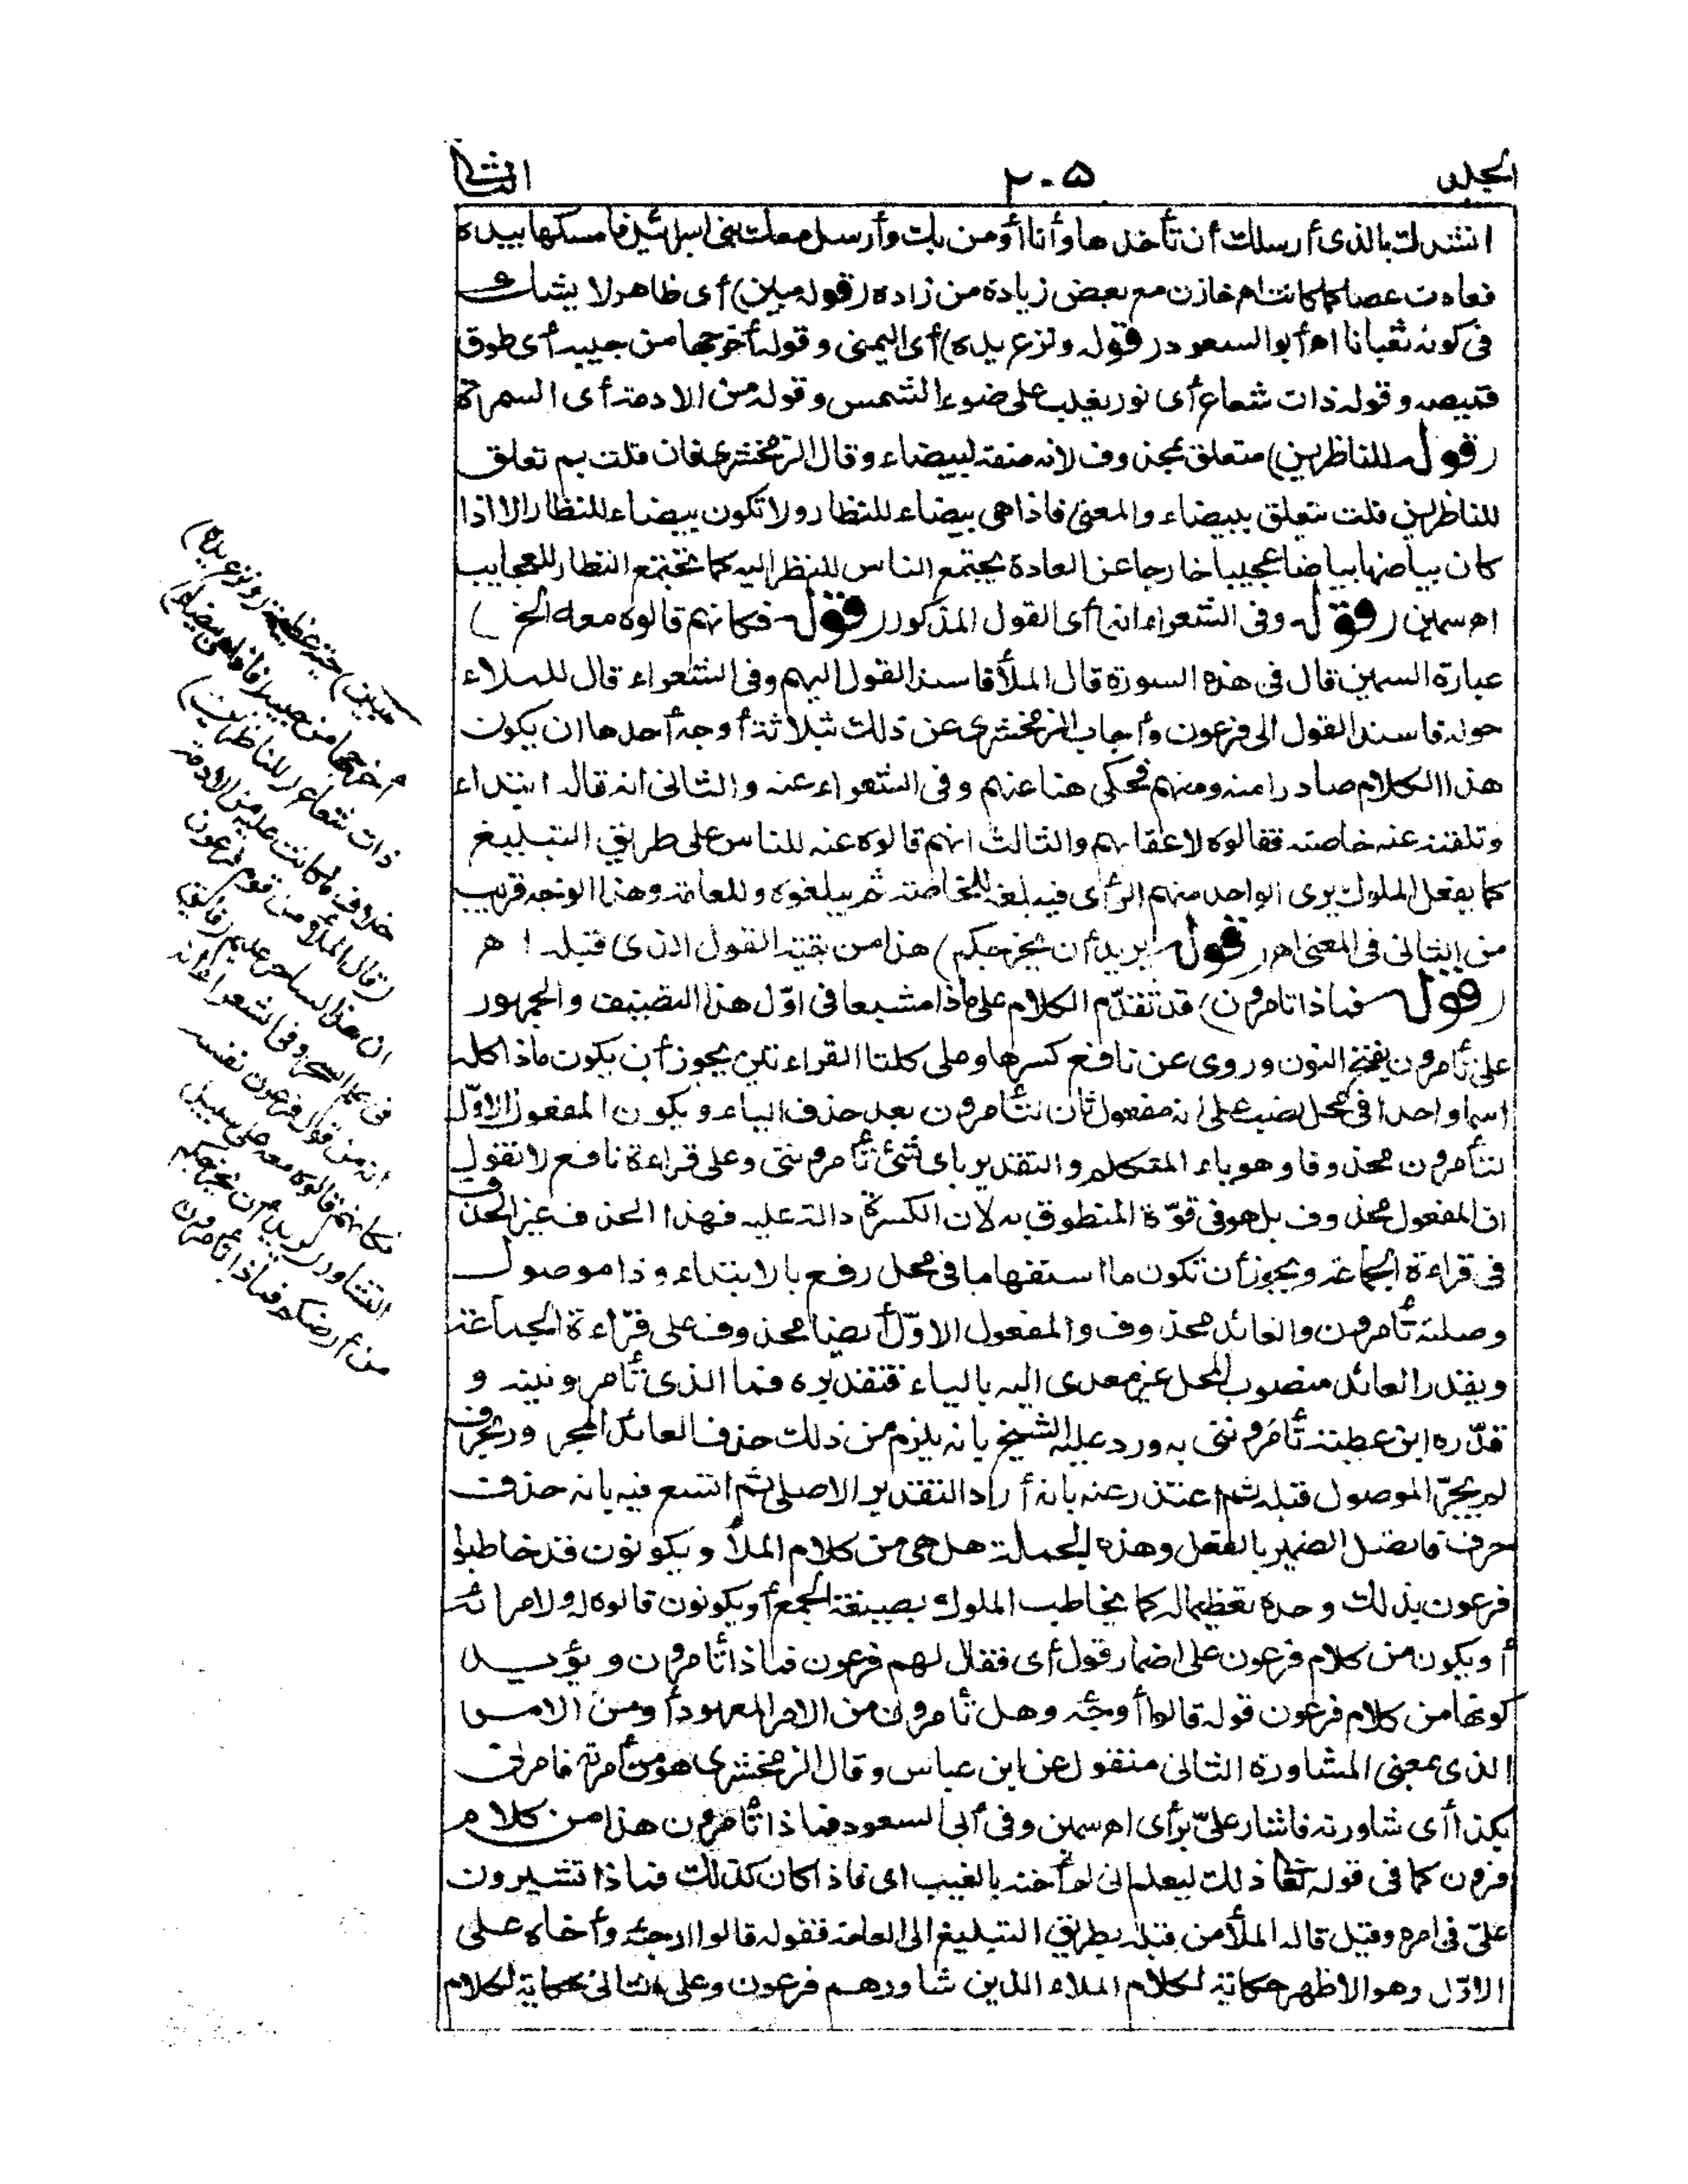 المجلد ٢٠٥ الثاني
انشدك بالذى أرسلك أن تأخذها وأنا أومن بك وأرسل معك بنى اسرائيل فامسكها بيده
فعادت عصا كما كانت اه خازن مع بعض زيادة من زاده (قوله مبين) أى ظاهر لا يشك
فى كونه ثعبانا اه أبو السعود (قوله ونزع يده) أى اليمنى وقوله أخرجها من جيبه أى طوق
قميصه وقوله ذات شعاع أى نور يغلب على ضوء الشمس وقوله من الادمة أى السمرة
(قوله للناظرين) متعلق بمحذوف لانه صفة لبيضاء وقال الزمخشرى فان قلت بم تعلق
للناظرين قلت يتعلق ببيضاء والمعنى فاذا هى بيضاء للنظار ولا تكون بيضاء للنظار الا اذا
كان بياضها بياضا عجيبا خارجا عن العادة يجتمع الناس للنظر اليه كما تجتمع النظار للعجايب
اه سمين (قوله وفى الشعراء انه) أى القول المذكور (قوله فكانهم قالوه معه الخ)
عبارة السمين قال فى هذه السورة قال الملأ فاسند القول اليهم وفى الشعراء قال للملاء
حوله فاسند القول الى فرعون وأجاب الزمخشرى عن ذلك بثلاثة أوجه أحدها ان يكون
هذا الكلام صادرا منه ومنهم فحكى هنا عنهم وفى الشعراء عنه والثانى انه قاله ابتداء
وتلقته عنه خاصته فقالوه لاعقابهم والثالث انهم قالوه عنه للناس على طريق التبليغ
كما يفعل الملوك يرى الواحد منهم الرأى فيبلغه للخاصة ثم يبلغوه وللعامة وهذا الوجه قريب
من الثانى فى المعنى اه (قوله يريد أن يخرجكم) هذا من تتمة القول الذى قبله اه
(قوله فماذا تامرون) قد تقدّم الكلام على ماذا مشبعا فى اوّل هذا التصنيف والجمهور
على تأمرون بفتح النون وروى عن نافع كسرها وعلى كلتا القراءتين يجوز أن يكون ماذا كله
اسما واحدا فى محل نصب على انه مفعول ثان لتأمرون بعد حذف الباء ويكون المفعول الاوّل
لتأمرون محذوفا وهو ياء المتكلم والتقدير باى شئ تأمروننى وعلى قراءة نافع لا نقول
ان المفعول محذوف بل هو فى قوّة المنطوق به لان الكسرة دالة عليه فهذا الحذف غير الحذف
فى قراءة الجماعة ويجوز أن تكون ما استفهاما فى محل رفع بالابتداء وذا موصول
وصلته تأمرون والعائد محذوف والمفعول الاوّل أيضا محذوف على قراءة الجماعة
ويقدر العائد منصوب المحل غير معدى اليه بالباء فتقديره فما الذى تأمرونيه و
قدّره ابن عطية تأمروننى به ورد عليه الشيخ بانه يلزم من ذلك حذف العائد المجرور بحرف
لم يجرّ الموصول قبله ثم اعتذر عنه بانه أراد التقدير الاصلى ثم اتسع فيه بانه حذف
حرف فاتصل الضمير بالفعل وهذه الجملة هل هى من كلام الملأ ويكونون قد خاطبوا
فرعون بذلك وحده تعظيما له كما يخاطب الملوك بصيغة الجمع أو يكونون قالوه له ولامرائه
أو يكون من كلام فرعون على اضمار قول أى فقال لهم فرعون فماذا تأمرون ويؤيد
كونها من كلام فرعون قوله قالوا أرجئه وهل تأمرون من الامر المعهود أو من الامر
الذى بمعنى المشاورة الثانى منقول عن ابن عباس وقال الزمخشرى هو من أمرته فامرنى
بكذا أى شاورته فاشار علىّ برأى اه سمين وفى أبى السعود فماذا تأمرون هذا من كلام
فرعون كما فى قوله تعا ذلك ليعلم انى لم أخنه بالغيب اى فاذا كان كذلك فماذا تشيرون
علىّ فى امره وقيل قاله الملأ من قبله بطريق التبليغ الى العامة فقوله قالوا ارجئه وأخاه على
الاوّل وهو الاظهر حكاية لكلام الملاء الذين شاورهم فرعون وعلى الثانى حكاية لكلام
مبين) حية عظيمة (ونزع يده)
أخرجها من جيبه (فاذا هى بيضاء)
ذات شعاع (للناظرين)
خلاف ما كانت عليه من الادمة
(قال الملأ من قوم فرعون
ان هذا لساحر عليم) فائق
فى علم السحر وفى الشعراء انه
انه من قول فرعون نفسه
فكانهم قالوه معه على سبيل
التشاور (يريد أن يخرجكم
من أرضكم فماذا تأمرون